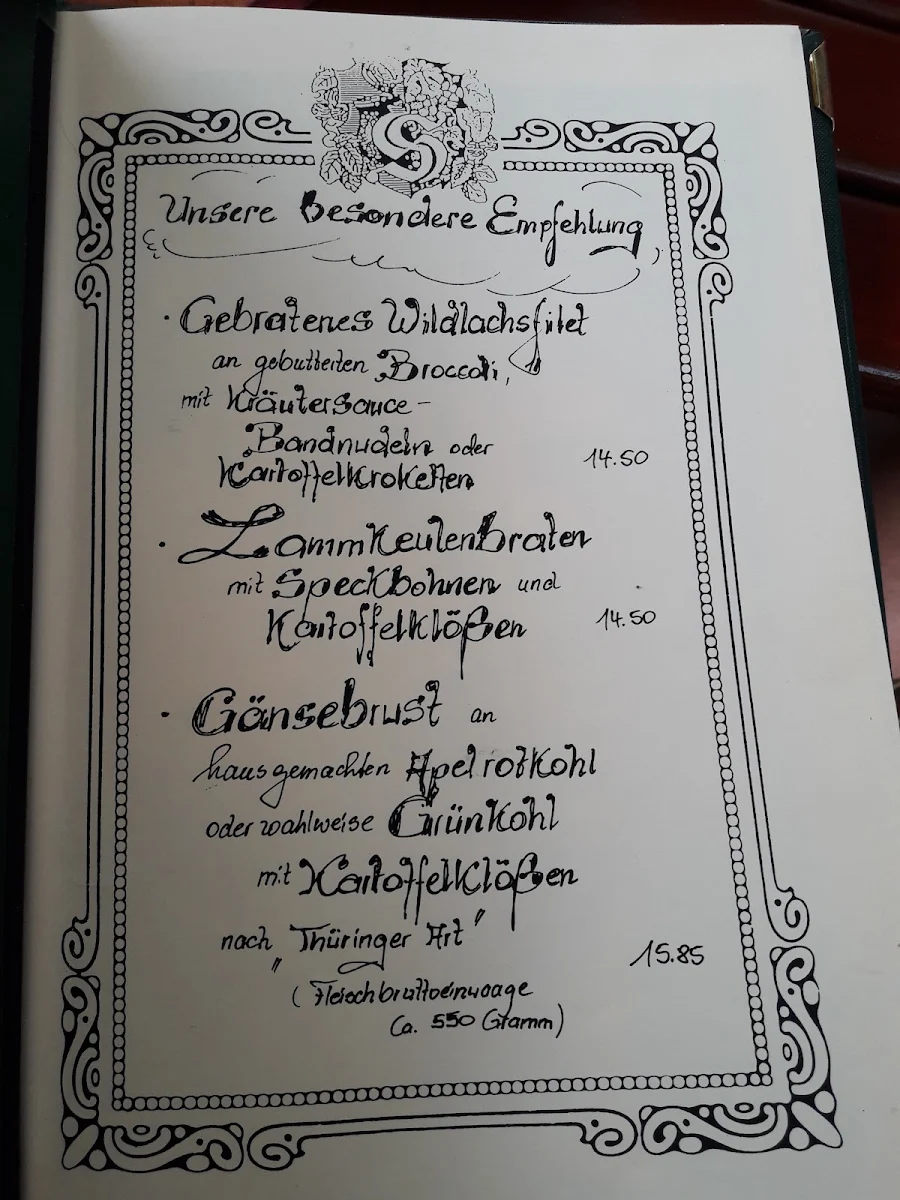 S
Unsere besondere Empfehlung
· Gebratenes Wildlachsfilet
an gebutterten Broccoli,
mit Kräutersauce -
Bandnudeln oder
Kartoffelkroketten 14.50
· Lammkeulenbraten
mit Speckbohnen und
Kartoffelklößen 14.50
· Gänsebrust an
hausgemachten Apelrotkohl
oder wahlweise Grünkohl
mit Kartoffelklößen
nach "Thüringer Art" 15.85
(Fleischbruttoeinwaage
Ca. 550 Gramm)